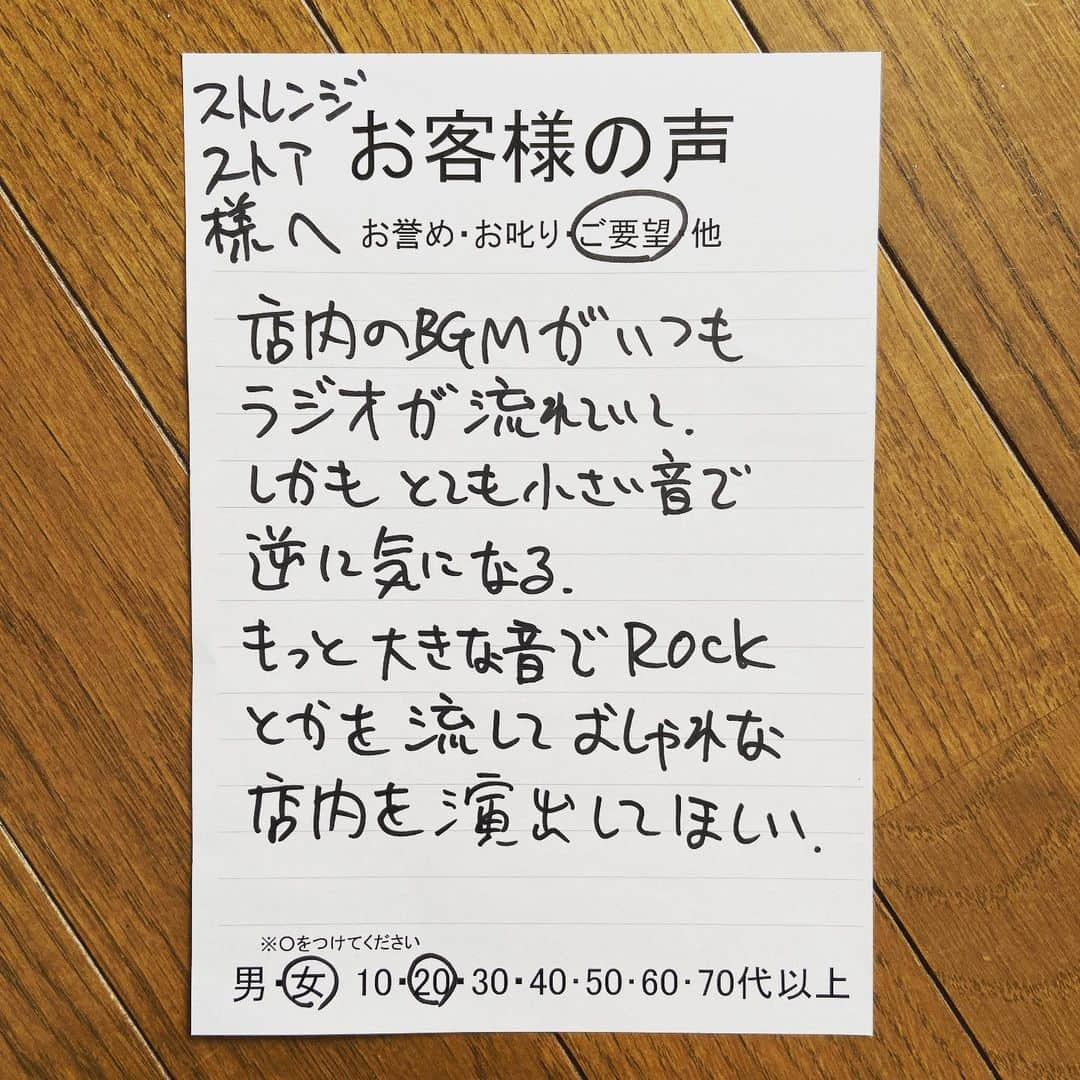 ストレンジ
ストア
様へ
お客様の声
お誉め・お叱り・ご要望・他
店内のBGMがいつも
ラジオが流れていて.
しかもとても小さい音で
逆に気になる.
もっと大きな音でRock
とかを流しておしゃれな
店内を演出してほしい.
※〇をつけてください
男・女 10・20・30・40・50・60・70代以上